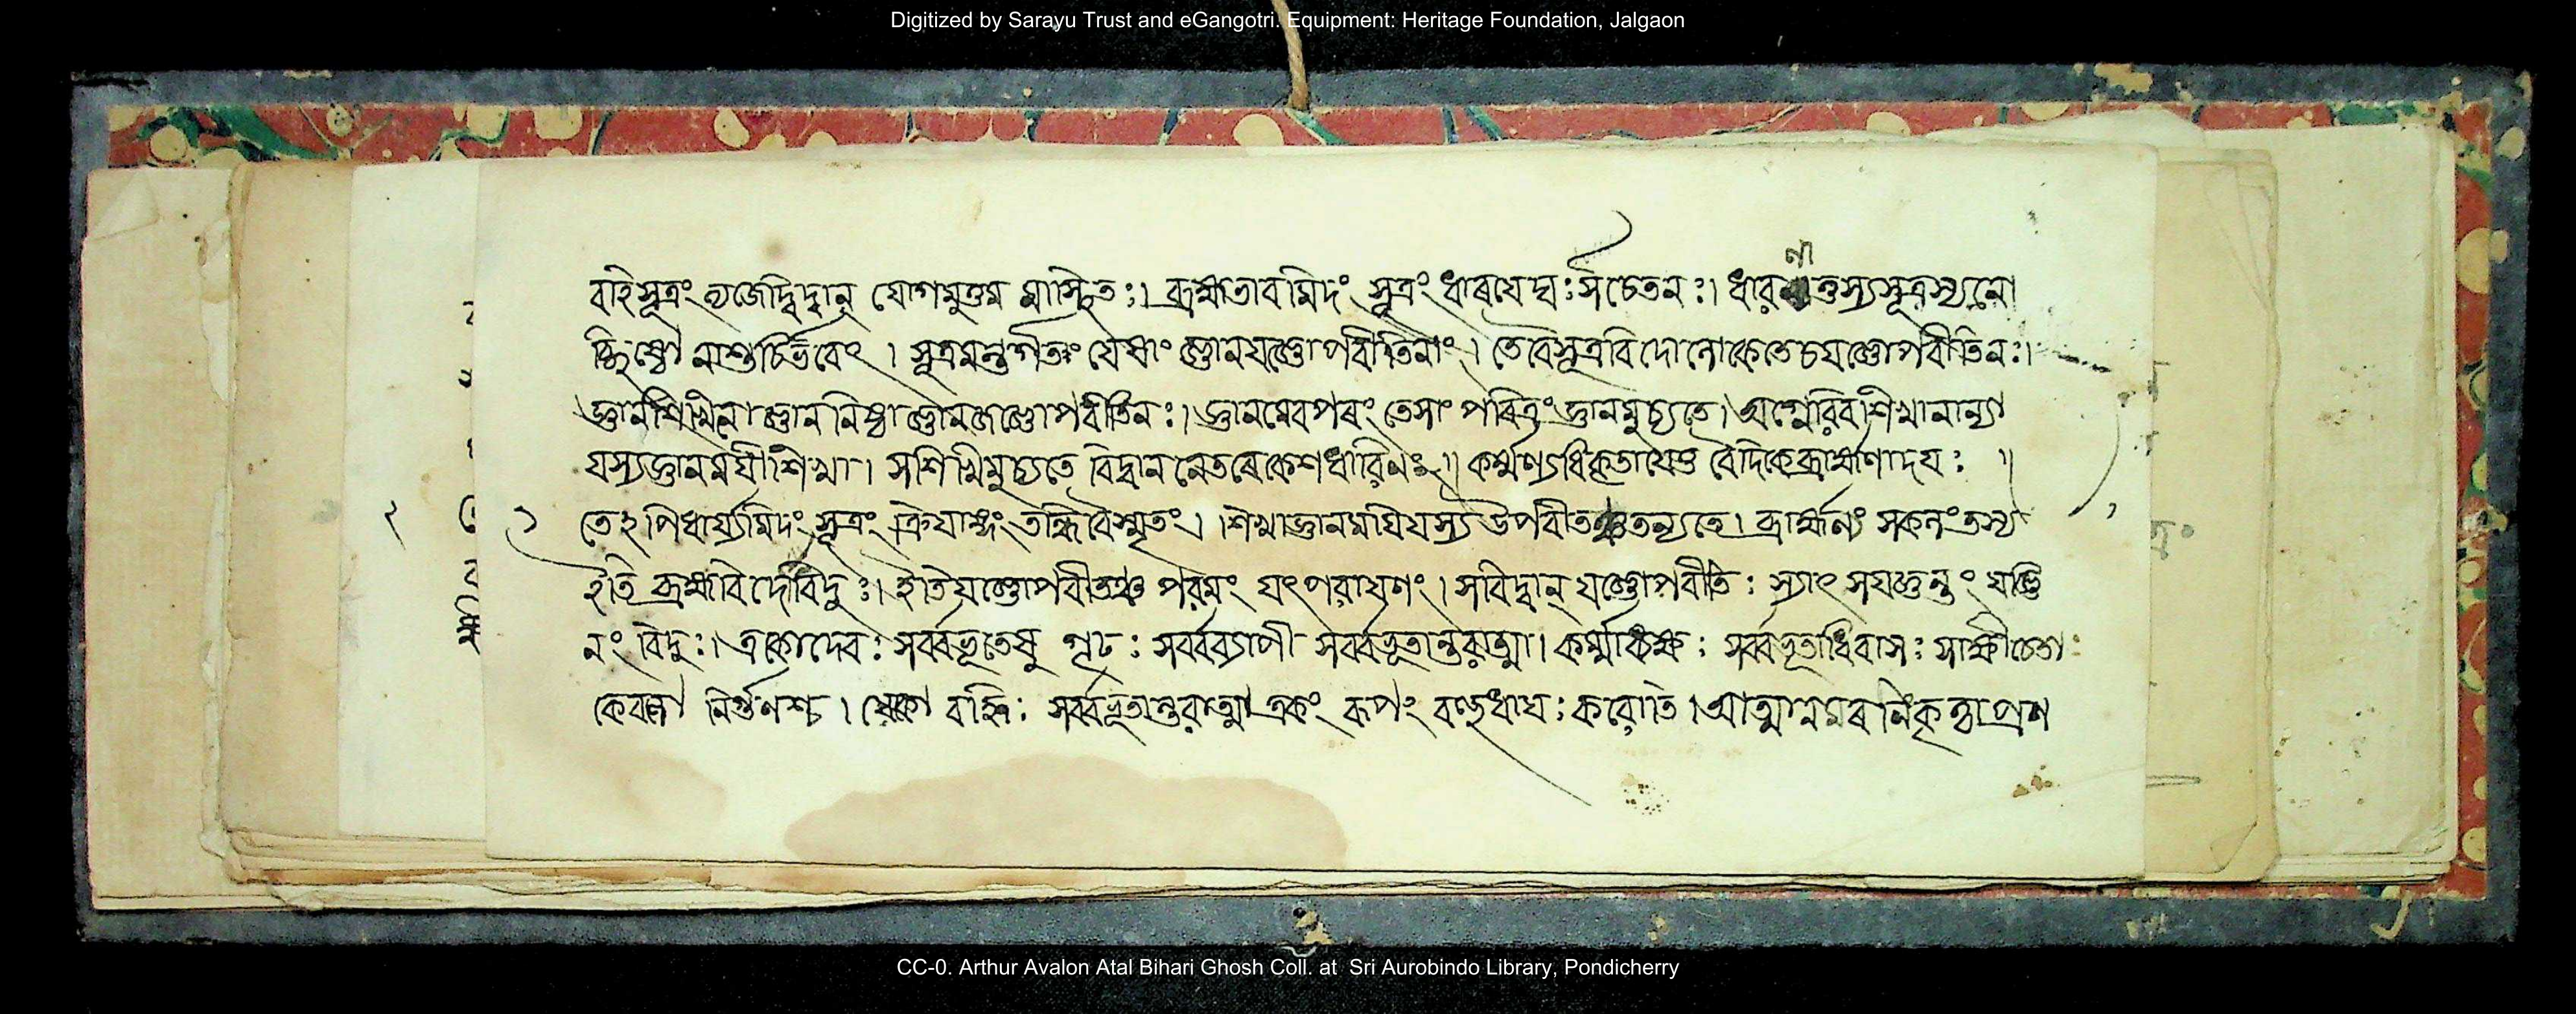 Digitized by Sarayu Trust and eGangotri. Equipment: Heritage Foundation, Jalgaon
বহিসূত্রং ত্যজেদ্বিদ্বান্ যোগমুত্তম মাস্থিতঃ। ব্রহ্মভাবমিদং সূত্রং ধাৰয়েদ্যঃ সচেতনঃ। ধারণাত্তস্যসূত্রস্যনো
চ্ছিষ্টো নাশুচির্ভবেৎ। সূত্রমন্তর্গতং যেষাং জ্ঞানযজ্ঞোপবীতিনাং। তেবৈসূত্রবিদোলোকেতেচযজ্ঞোপবীতিনঃ।
জ্ঞানশিখিনোজ্ঞাননিষ্ঠাজ্ঞানজজ্ঞোপবীতিনঃ। জ্ঞানমেবপৰং তেসাং পৱিত্রংজ্ঞানমুচ্যতে। অগ্নেরিবশিখানান্যা
যস্যজ্ঞানময়ীশিখা। সশিখিমুচ্যতে বিদ্বাননেতৰেকেশধারিণঃ॥ কর্ম্মণ্যধিকৃতাযেতু বৈদিকেব্রাহ্মণাদয়ঃ॥
তেহপিধার্য্যামিদং সূত্রং ক্রিয়াঙ্গং তদ্ধিবৈস্মৃতং। শিখাজ্ঞানময়িযস্য উপবীতঞ্চতন্যতে। ব্রাহ্মণ্যং সকলংতস্য
ইতি ব্রহ্মবিদোবিদুঃ। ইতিযজ্ঞোপবীতঞ্চ পরমং যৎপরায়ণং। সবিদ্বান্ যজ্ঞোপবীতিঃ স্যাৎ সযজ্ঞন্তং যজ্বি
নং বিদুঃ। একোদেবঃ সর্ব্বভূতেষু গূঢঃ সর্ব্বব্যাপী সর্ব্বভূতান্তরাত্মা। কর্ম্মাধ্যক্ষঃ সর্ব্বভূতাধিবাসঃ সাক্ষীচেতাঃ
কেবলো নির্গুণশ্চ। একো বহ্নিঃ সর্ব্বভূতান্তরাত্মা একং ৰূপং বহুধাযঃ করোতি। আত্মানমৰণিংকৃত্বাপ্রণ
CC-0. Arthur Avalon Atal Bihari Ghosh Coll. at Sri Aurobindo Library, Pondicherry